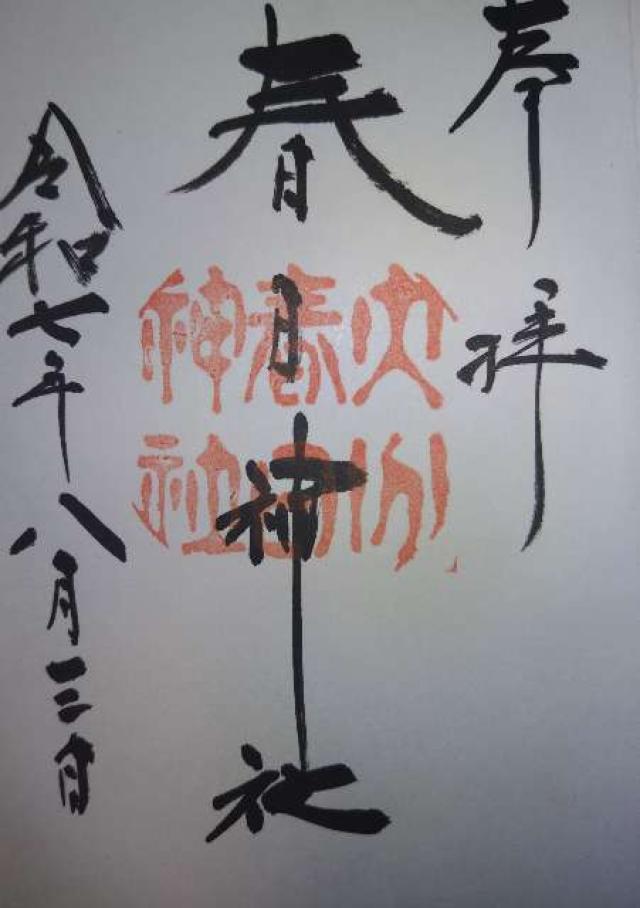 奉拝
春日神社
大分
春日
神社
令和七年八月三日